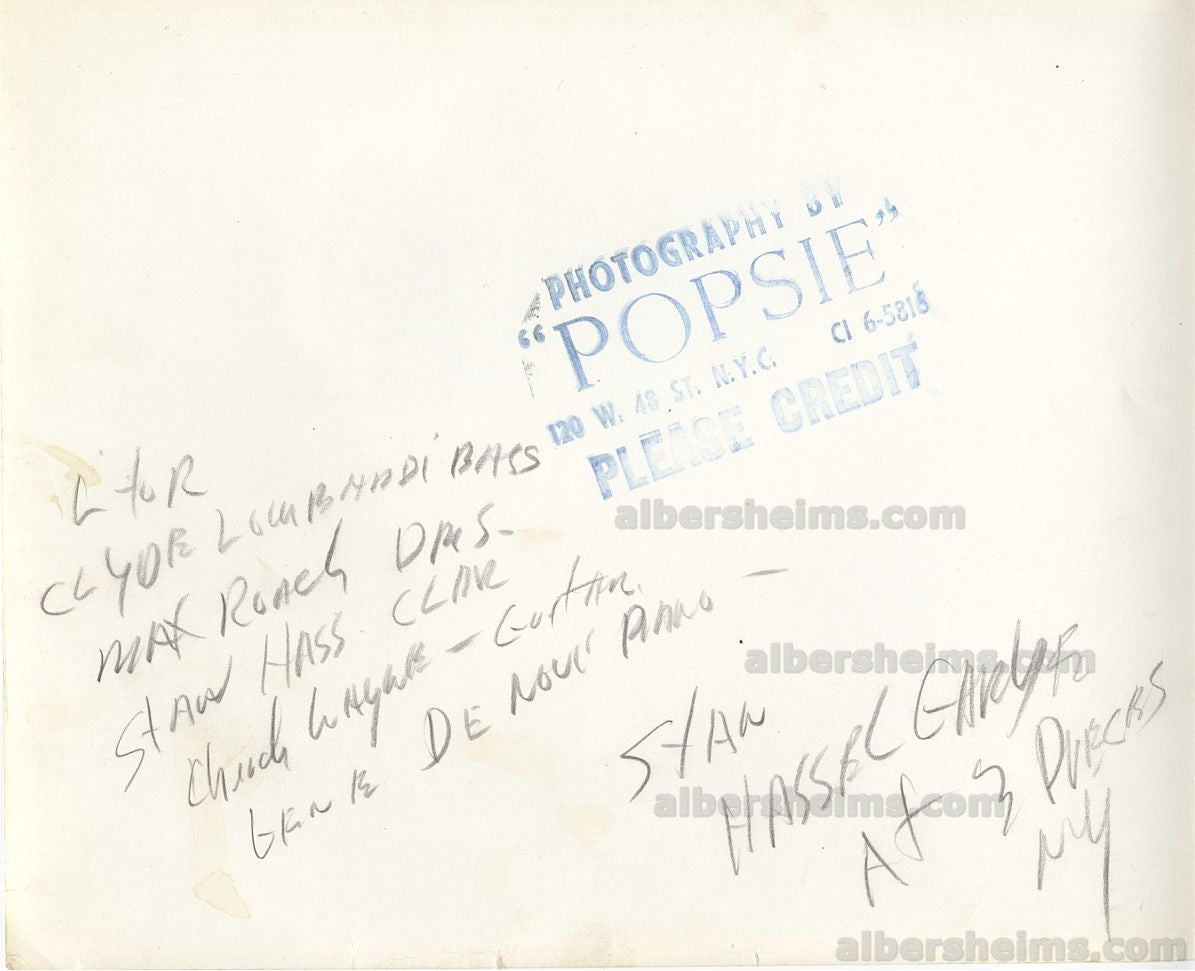 PHOTOGRAPHY BY
"POPSIE"
120 W. 48 ST. N.Y.C. CI 6-5816
PLEASE CREDIT
albersheims.com
L to R
CLYDE LOMBARDI BASS
MAX ROACH DMS-
STAN HASS. CLAR
Chuck WAYNE - GUITAR.
GENE DE NOVI PIANO -
albersheims.com
STAN
HASSELGARD
albersheims.com
AT 3 DUECES
NY
albersheims.com